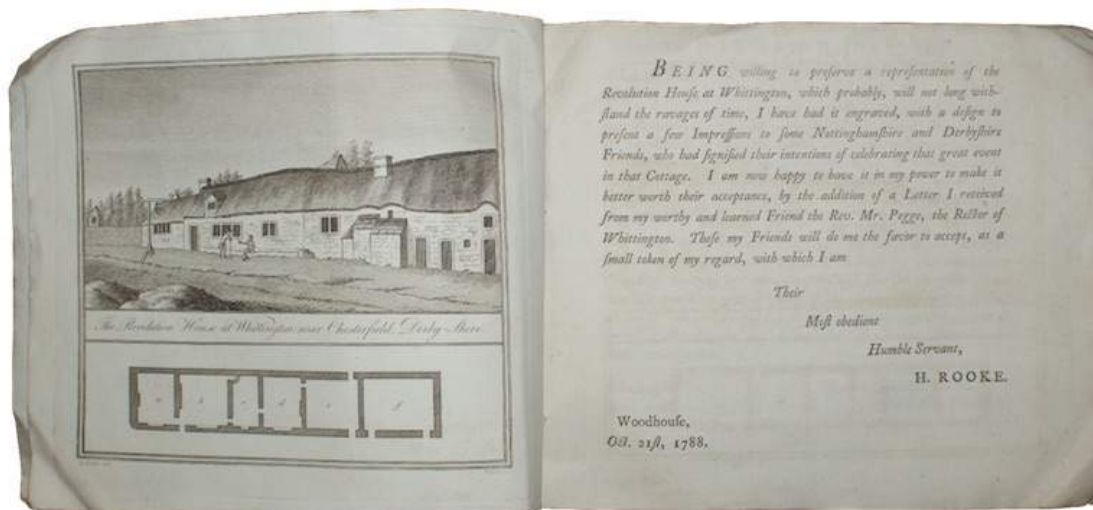 The Revolution House at Whittington near Chesterfield, Derby-Shire.
a b c d e f
BEING willing to preſerve a repreſentation of the
Revolution Houſe at Whittington, which probably, will not long with-
ſtand the ravages of time, I have had it engraved, with a deſign to
preſent a few Impreſſions to ſome Nottinghamſhire and Derbyſhire
Friends, who had ſignified their intentions of celebrating that great event
in that Cottage. I am now happy to have it in my power to make it
better worth their acceptance, by the addition of a Letter I received
from my worthy and learned Friend the Rev. Mr. Pegge, the Rector of
Whittington. Theſe my Friends will do me the favor to accept, as a
ſmall token of my regard, with which I am
Their
Moſt obedient
Humble Servant,
H. ROOKE.
Woodhouſe,
Oct. 21ſt, 1788.